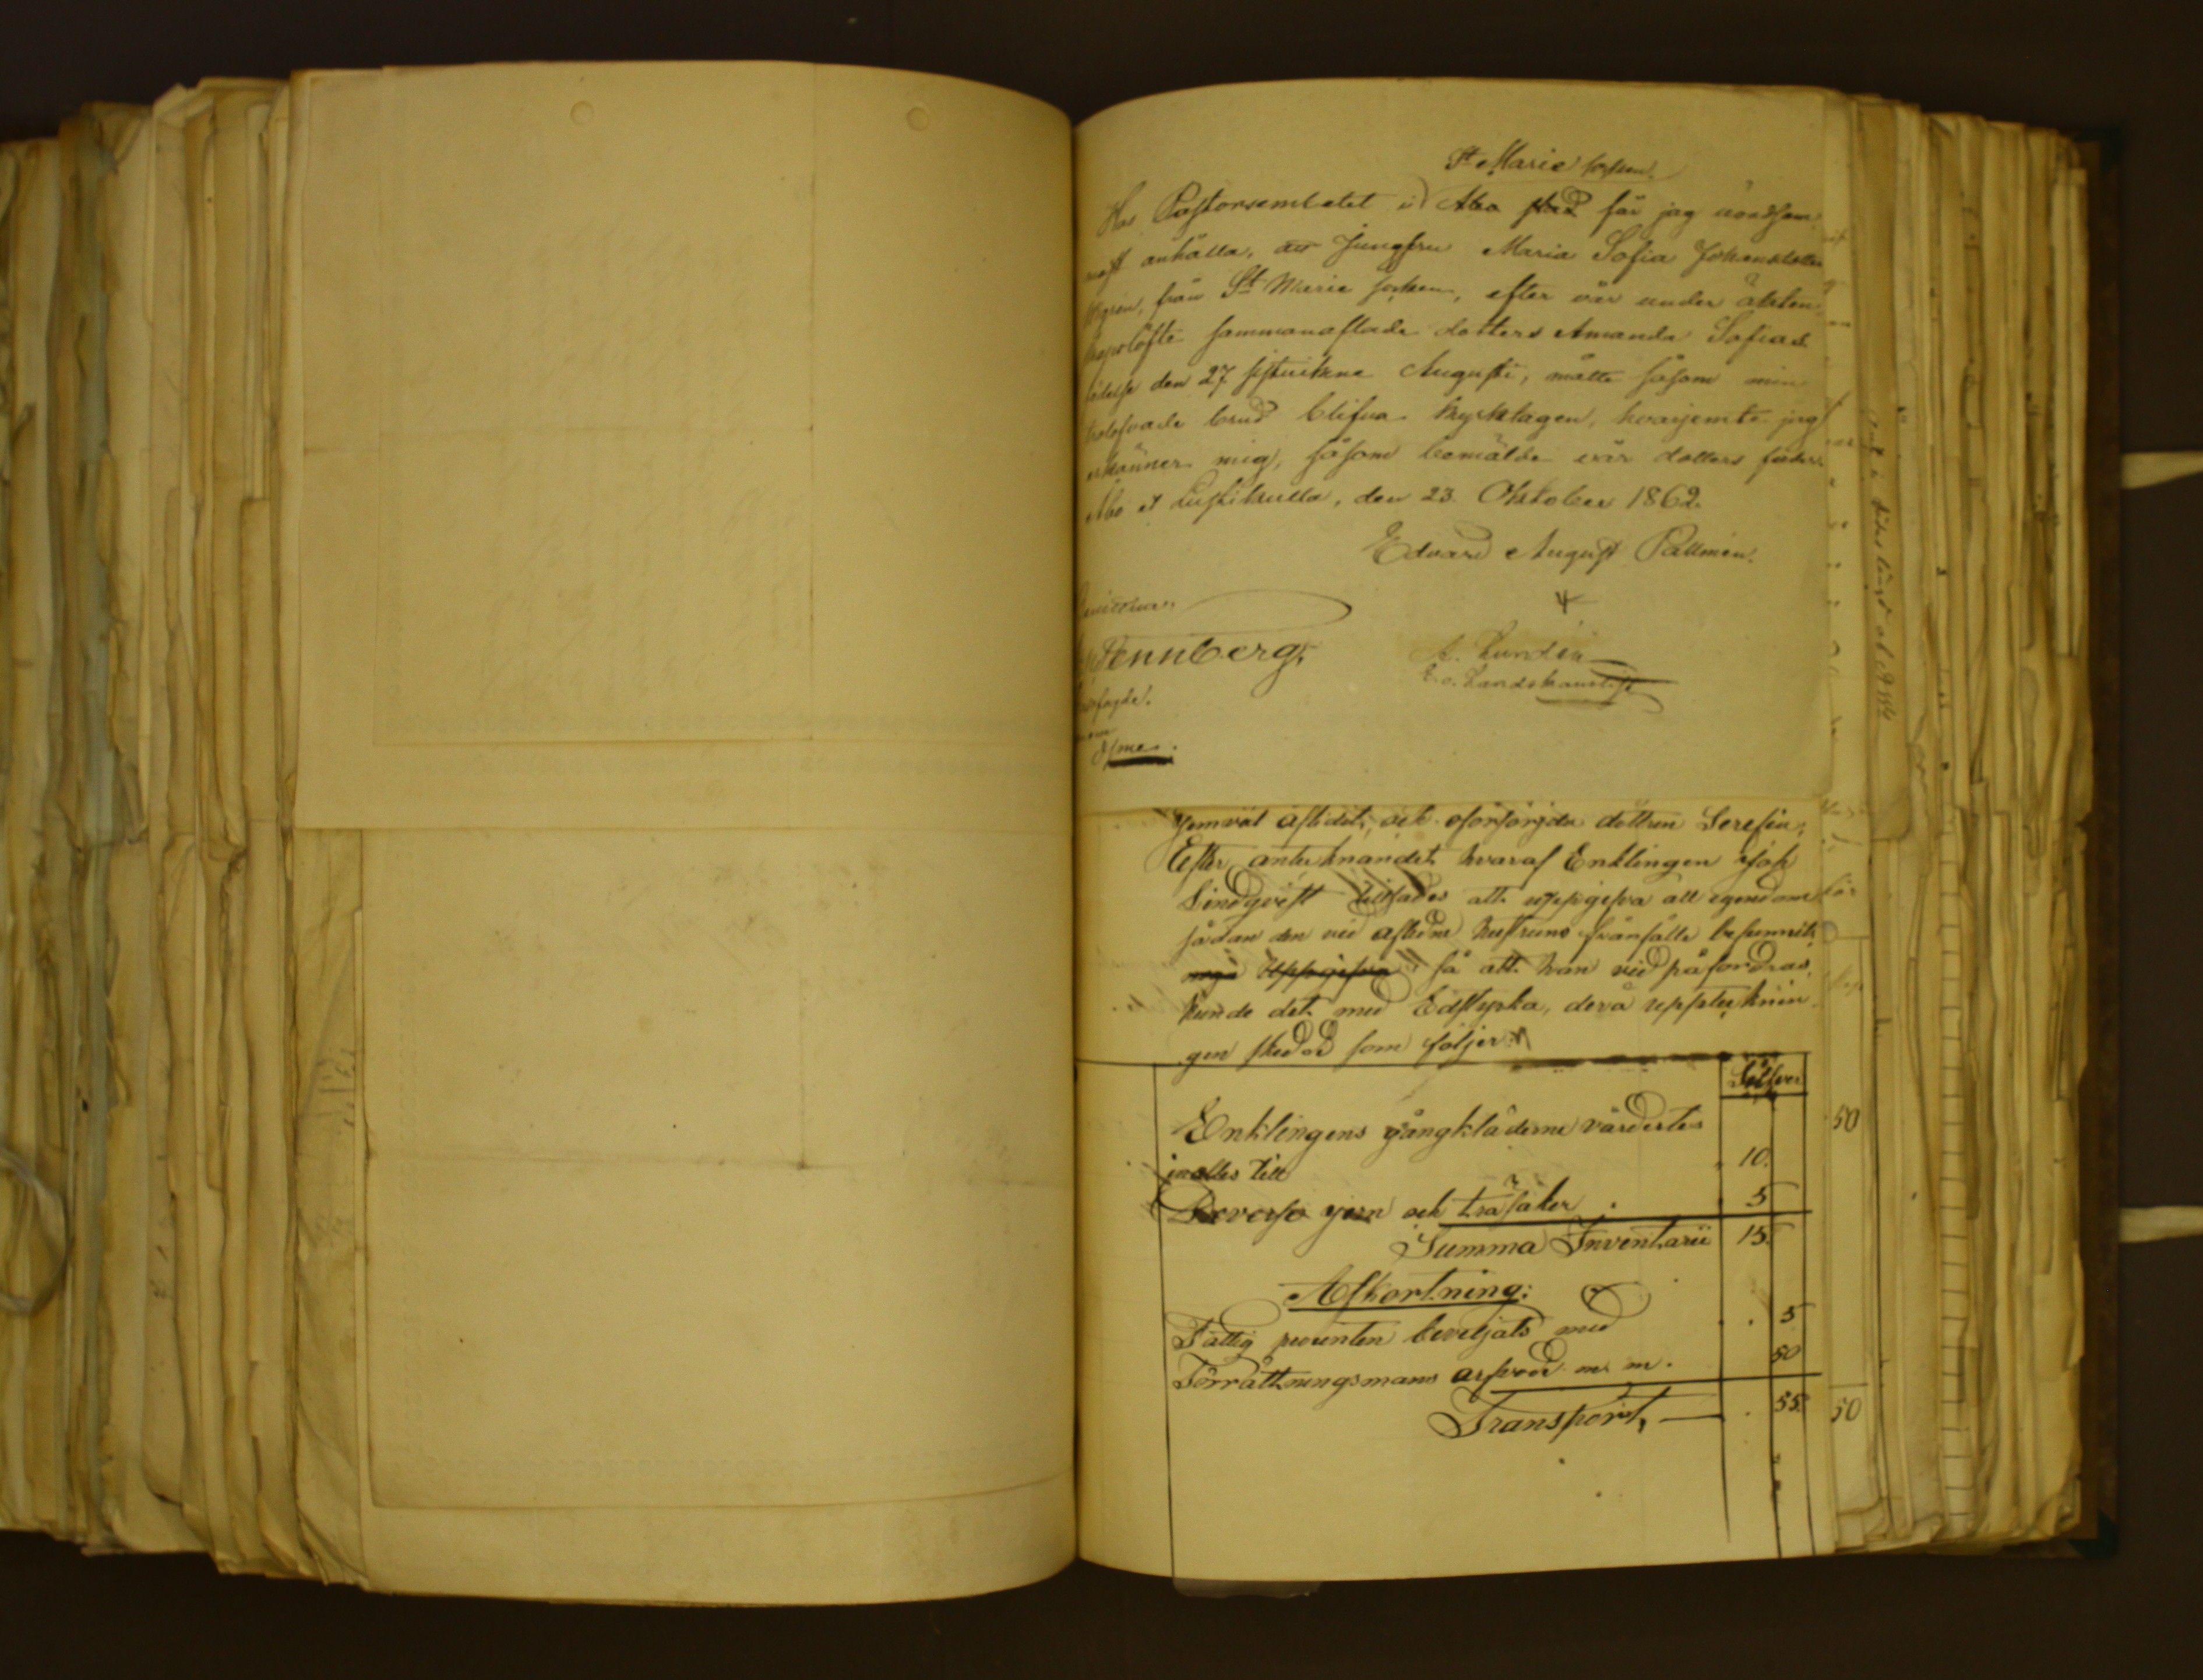 St Marie socken.
Hos Pastorsembetet i Åbo stad får jag ödmju-
anhålla, att Jungfru Maria Sofia Johansdotter
från St Marie socken, efter vår under äkten-
skapslöfte sammanaflade dotters Amanda Sofias
födelse den 27 sistvikne Augusti, måtte såsom min
trolofvade brud blifva kyrktagen, hvarjemte jag
erkänner mig, såsom bemälde vår dotters fader.
Åbo den 23 Oktober 1862.
Edvard August Pallmén.
A. Lundén
E. o. Landskanslist
Jemväl aflidit, och oförsörjda dottren Serefin;
Efter antecknandet hvaraf Enklingen
Lindqvist tillsades att uppgifva all egendom
sådan den vid aflidne hustruns frånfälle befunnits
uppgifva så att han vid påfordran
kunde det med Ed styrka, derå upptecknin-
gen skedde som följer:
Silfver
Enklingens gångkläderne värdertes
inalles till 10.
Diverse jern och träsaker 5
Summa Inventarii 15.
Afkortning:
Fattig procenten beviljats med 5
Förrättningsmans arfvod m. m. 50
Transport, 55.
50
50